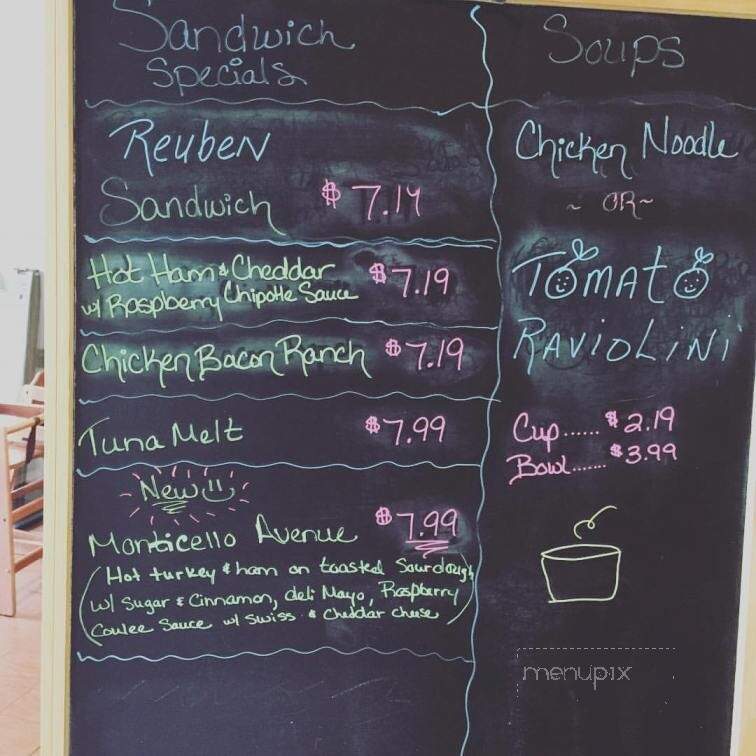 Sandwich
Specials
Reuben
Sandwich $7.19
Hot Ham & Cheddar
w/ Raspberry Chipotle Sauce $7.19
Chicken Bacon Ranch $7.19
Tuna Melt $7.99
New
Monticello Avenue $7.99
(Hot turkey & ham on toasted Sourdough
w/ Sugar & Cinnamon, deli Mayo, Raspberry
Coulee Sauce w/ Swiss & Cheddar cheese)
Soups
Chicken Noodle
~ OR ~
Tomato
Raviolini
Cup...... $2.19
Bowl....... $3.99
menupix